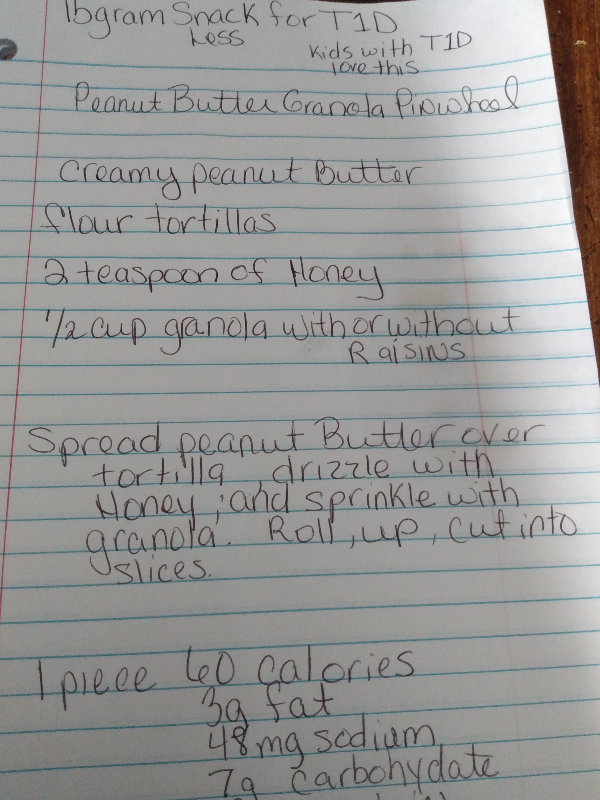 16gram Snack for T1D
Less
Kids with T1D
love this
Peanut Butter Granola Pinwheel
Creamy peanut Butter
flour tortillas
2 teaspoon of Honey
1/2 cup granola with or without
Raisins
Spread peanut Butter over
tortilla, drizzle with
Honey, and sprinkle with
granola. Roll, up, cut into
slices.
1 piece 60 calories
3g fat
48mg sodium
7g carbohydate